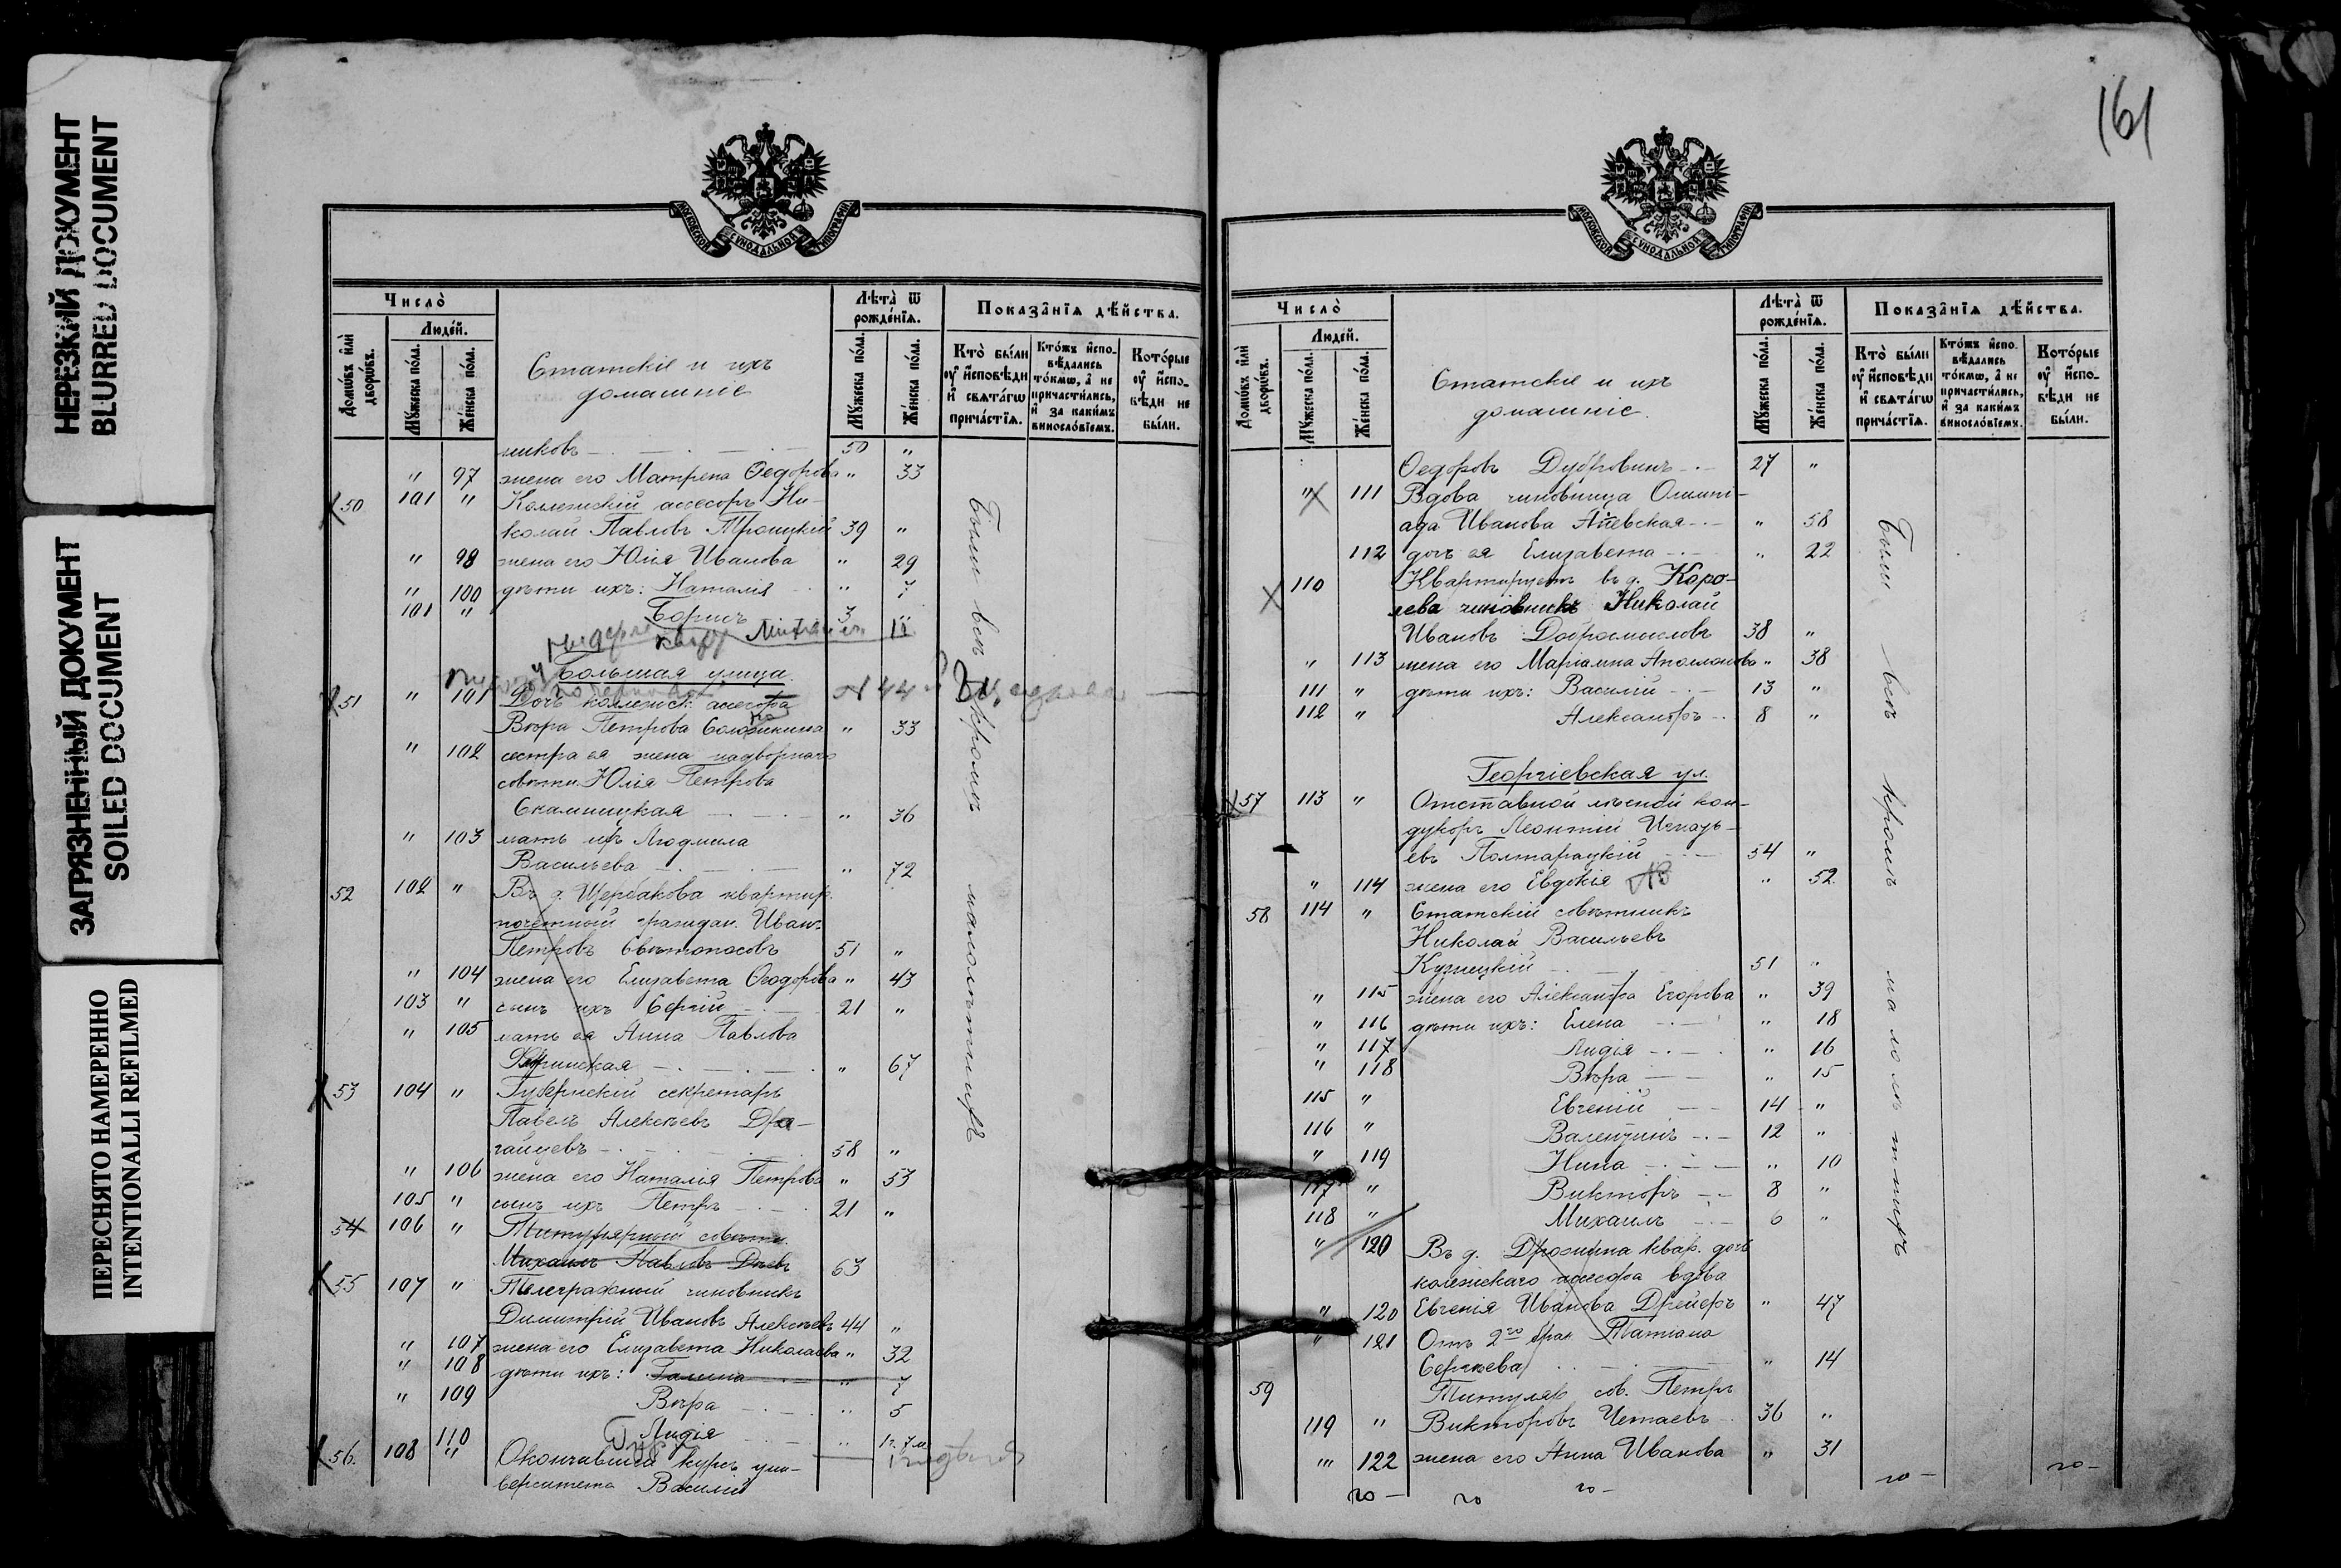 НЕРЕЗКИЙ ДОКУМЕНТ
BLURRED DOCUMENT
ЗАГРЯЗНЕННЫЙ ДОКУМЕНТ
SOILED DOCUMENT
ПЕРЕСНЯТО НАМЕРЕННО
INTENTIONALLI REFILMED
МОСКОВСКОЙ СѴНОДАЛЬНОЙ ТИПОГРАФІИ
Число̀
Людей.
Домѡвъ и҆лѝ дворѡвъ.
Мꙋжеска пола.
Женска пола.
Статскіе и ихъ
домашніе
Лѣта̀ ѿ рожде́нїѧ.
Мꙋжеска пола.
Женска пола.
Показа̑нїѧ дѣ́йства.
Кто̀ бы́ли оу҆ и҆сповѣди и҆ свѧта́гѡ прича́стїѧ.
Кто́жъ и҆спо- вѣдались то́кмѡ, а҆ не причасти́лись, и҆ за каки́мъ виносло́вїемъ.
Кото́рые оу҆ и҆спо- вѣди не бы́ли.
никовъ 50 "
" 97 жена его Матрена Ѳедорова " 33
50 101 " Коллежскій ассесоръ Ни-
колай Павловъ Троицкій 39 "
" 98 жена его Юлія Иванова " 29
" 100 дѣти ихъ: Наталія " 7
101 " Борисъ 3 "
Большая улица.
51 " 101 Дочь коллежск. ассесора
Вѣра Петрова " 33
" 102 сестра ея жена надворнаго
совѣтн. Юлія Петрова
Скамницкая " 36
" 103 мать ихъ Людмила
Васильева " 72
52 102 " Въ д. Щербакова квартир.
почетный граждан. Иванъ
Петровъ Свѣтоносовъ 51 "
" 104 жена его Елизавета Ѳеодорова " 43
103 " сынъ ихъ Сергій 21 "
" 105 мать ея Анна Павлова
" 67
53 104 " Губернскій секретарь
Павелъ Алексѣевъ Дра-
гайцевъ 58 "
" 106 жена его Наталія Петрова " 53
105 " сынъ ихъ Петръ 21 "
54 106 " Титулярный совѣтн.
Михаилъ Павловъ 63
55 107 " Телеграфный чиновникъ
Димитрій Ивановъ Алексѣевъ 44 "
" 107 жена его Елизавета Николаева " 32
" 108 дѣти ихъ: Галина " 7
" 109 Вѣра " 5
" 110 Лидія " 1г. 7м.
56. 108 " Окончившій курсъ уни-
верситета Василій
Были всѣ кромѣ малолѣтнихъ
161
МОСКОВСКОЙ СѴНОДАЛЬНОЙ ТИПОГРАФІИ
Число̀
Людей.
Домѡвъ и҆лѝ дворѡвъ.
Мꙋжеска пола.
Женска пола.
Статскіе и ихъ
домашніе.
Лѣта̀ ѿ рожде́нїѧ.
Мꙋжеска пола.
Женска пола.
Показа̑нїѧ дѣ́йства.
Кто̀ бы́ли оу҆ и҆сповѣди и҆ свѧта́гѡ прича́стїѧ.
Кто́жъ и҆спо- вѣдались то́кмѡ, а҆ не причасти́лись, и҆ за каки́мъ виносло́вїемъ.
Кото́рые оу҆ и҆спо- вѣди не бы́ли.
Ѳедоровъ Дубровинъ 27 "
" 111 Вдова чиновница Олимпі-
ада Иванова " 58
112 дочь ея Елизавета " 22
110 Квартирует въ д. Коро-
лева чиновникъ Николай
Ивановъ Добросмысловъ 38 "
" 113 жена его Маріамна Аполлонова " 38
111 " дѣти ихъ: Василій 13 "
112 " Александръ 8 "
Георгіевская ул.
57 113 " Отставной лѣсной кон-
дукторъ Леонтій Игнать-
евъ Полтарацкій 54 "
" 114 жена его Евдокія " 52
58 114 " Статскій совѣтникъ
Николай Васильевъ
Кузнецкій 51 "
" 115 жена его Александра Егорова " 39
" 116 дѣти ихъ: Елена " 18
" 117 Лидія " 16
" 118 Вѣра " 15
115 " Евгеній 14 "
116 " Валентинъ 12 "
" 119 Нина " 10
117 " Викторъ 8 "
118 " Михаилъ 6 "
" 120 Въ д. Дрожжина квар. дочь
колежскаго ассесора вдова
" 120 Евгенія Иванова Дрейеръ " 47
" 121 Отъ 2го брак Татіана
Сергѣева " 14
59 Титуляр. сов. Петръ
119 " Викторовъ Четаевъ 36 "
" 122 жена его Анна Иванова " 31
Были всѣ кромѣ малолѣтнихъ